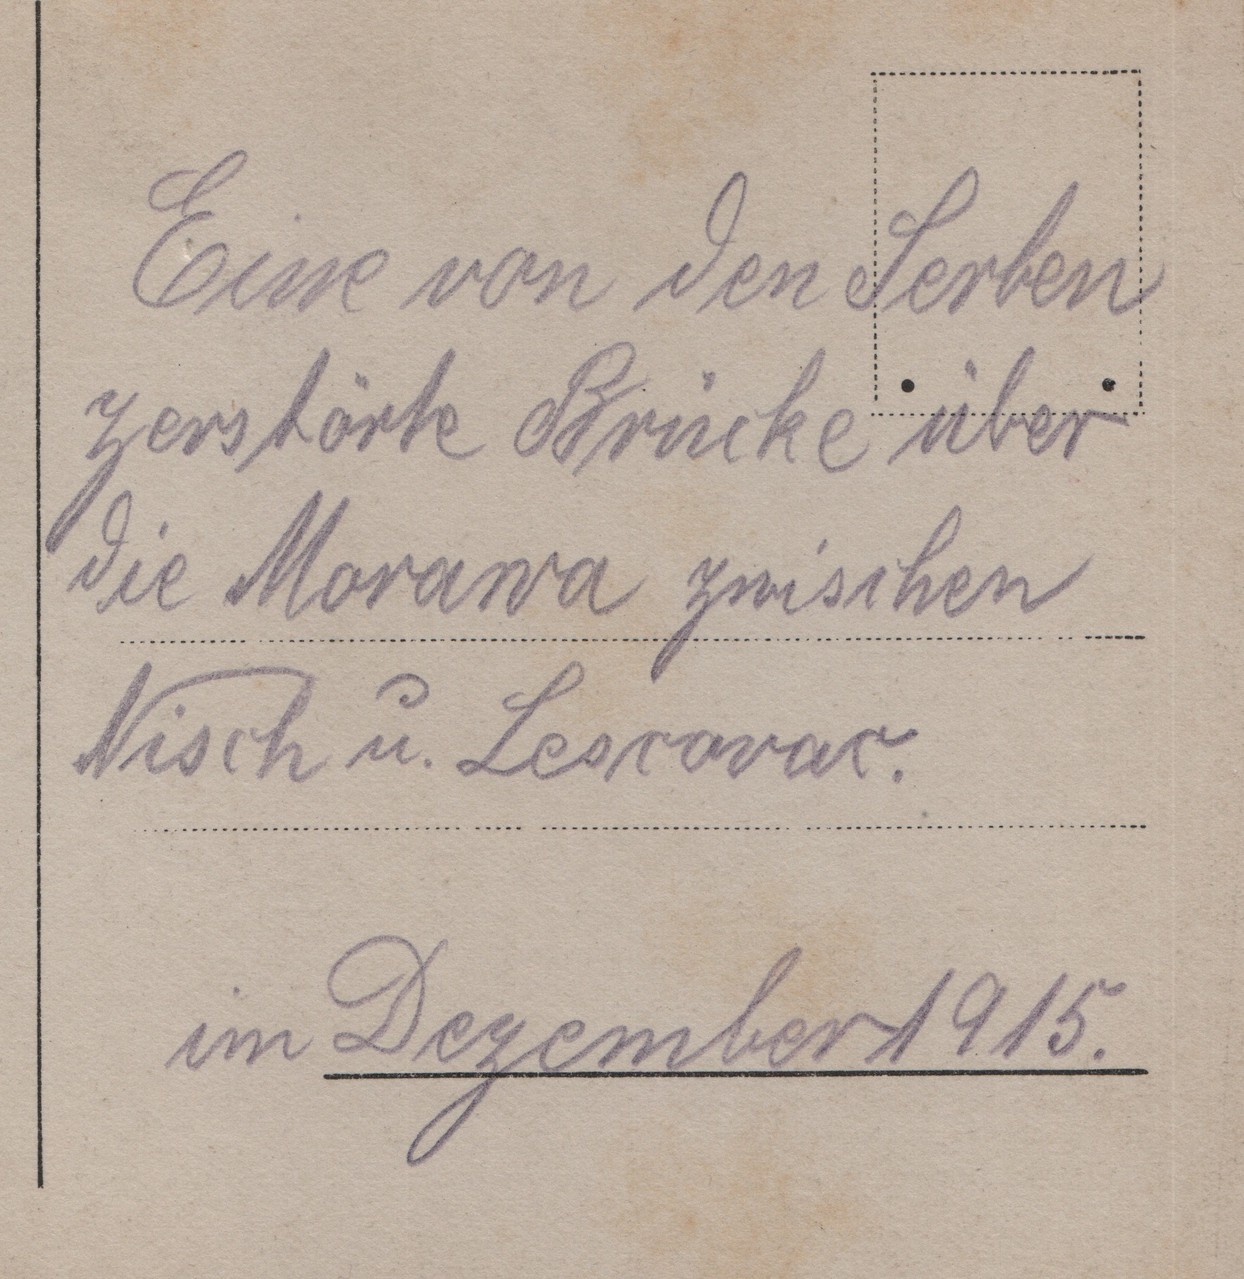 Eine von den Serben
zerstörte Brücke über
die Morawa zwischen
Nisch u. Lescovac.
im Dezember 1915.